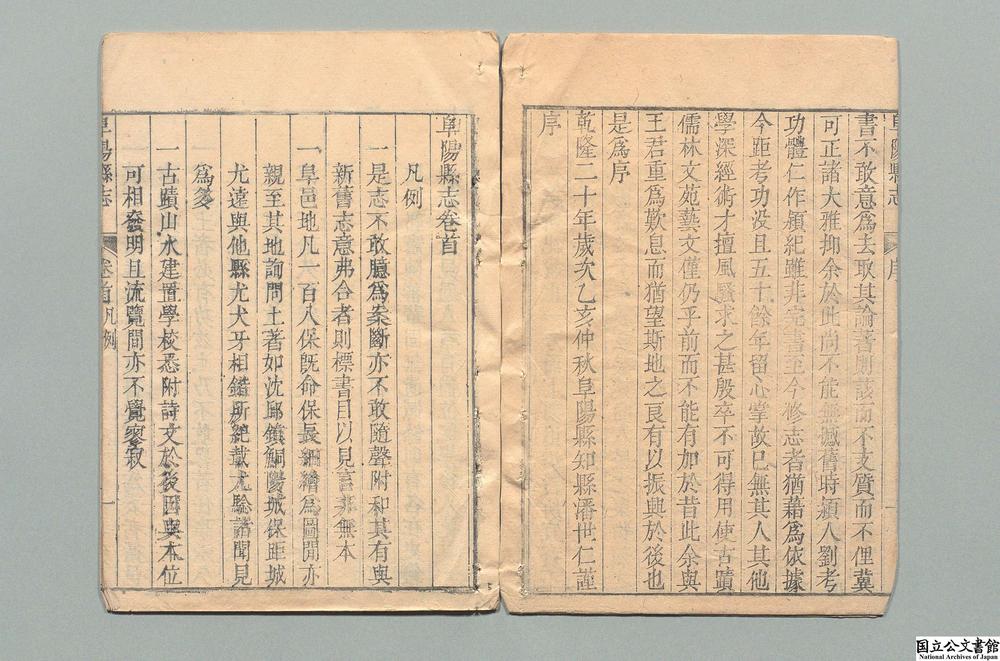 書不敢意爲去取其論著則該而不支質而不俚冀
可正諸大雅抑余於此尚不能無憾舊時潁人劉考
功體仁作潁紀雖非完書至今修志者猶藉爲依據
今距考功没且五十餘年留心掌故已無其人其他
學深經術才擅風騷求之甚殷卒不可得用使古蹟
儒林文苑藝文僅仍乎前而不能有加於昔此余與
王君重爲歎息而猶望斯地之良有以振興於後也
是爲序
乾隆二十年歲次乙亥仲秋阜陽縣知縣潘世仁謹
序
阜陽縣志 序
阜陽縣志卷首
凡例
一是志不敢臆爲案斷亦不敢隨聲附和其有與
新舊志意弗合者則標書目以見言非無本
一阜邑地凡一百八保既命保長細繪爲圖閒亦
親至其地詢問土著如沈邱鎮鮦陽城保距城
尤遠與他縣尤犬牙相錯所紀載尤騐諸聞見
爲多
一古蹟山水建置學校悉附詩文於後因與本位
可相發明且流覽間亦不覺寥寂
阜陽縣志 卷首凡例 一
国立公文書館
National Archives of Japan